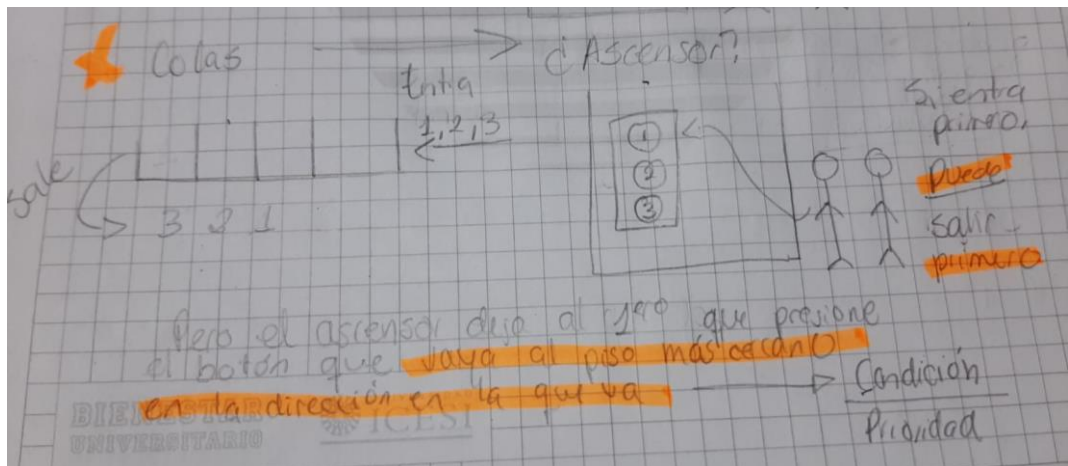 Colas
¿Ascensor?
Entra
1,2,3
Sale
3 2 1
1
2
3
Si entra
primero,
puede
salir
primero
Pero el ascensor deja al 1ero que presione
el botón que vaya al piso más cercano
en la dirección en la que va
Condición
Prioridad
BIENESTAR
UNIVERSITARIO
ICESI